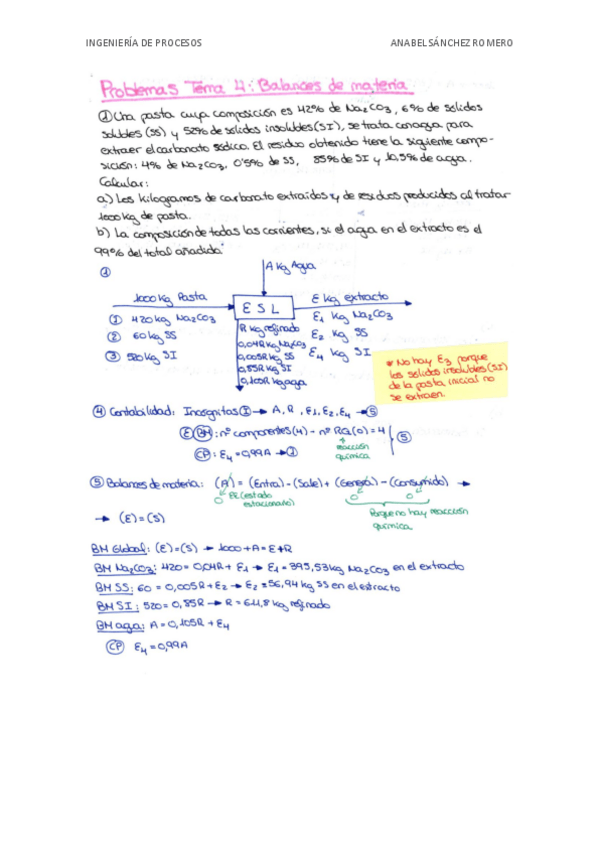 INGENIERÍA DE PROCESOS
ANABEL SÁNCHEZ ROMERO
Problemas Tema 4: Balances de materia
① Una pasta cuya composición es 42% de Na2CO3, 6% de sólidos
solubles (SS) y 52% de sólidos insolubles (SI), se trata con agua para
extraer el carbonato sódico. El residuo obtenido tiene la siguiente compo-
sición: 4% de Na2CO3, 0'5% de SS, 85% de SI y 10,5% de agua.
Calcular:
a) Los kilogramos de carbonato extraídos y de residuos producidos al tratar
1000 kg de pasta.
b) La composición de todas las corrientes, si el agua en el extracto es el
99% del total añadido.
①
A kg Agua
1000 kg Pasta
E S L
E kg extracto
① 420 kg Na2CO3
② 60 kg SS
③ 520 kg SI
R kg refinado
0,04R kg Na2CO3
0,005R kg SS
0,85R kg SI
0,105R kg agua
E1 kg Na2CO3
E2 kg SS
E4 kg SI
* No hay E3 porque
los sólidos insolubles (SI)
de la pasta inicial no
se extraen.
④ Contabilidad: Incógnitas Ⓘ → A, R, E1, E2, E4 → ⑤
Ⓔ BM: nº componentes (4) - nº RG (0) = 4
reacción
química
CP: E4 = 0,99A → ①
⑤
⑤ Balances de materia: (A) = (Entra) - (Sale) + (Genera) - (Consumido) →
0 EE (estado
estacionario)
0 0
Porque no hay reacción
química
→ (E) = (S)
BM Global: (E) = (S) → 1000 + A = E + R
BM Na2CO3: 420 = 0,04R + E1 → E1 = 395,53 kg Na2CO3 en el extracto
BM SS: 60 = 0,005R + E2 → E2 = 56,94 kg SS en el extracto
BM SI: 520 = 0,85R → R = 611,8 kg refinado
BM agua: A = 0,105R + E4
CP E4 = 0,99A